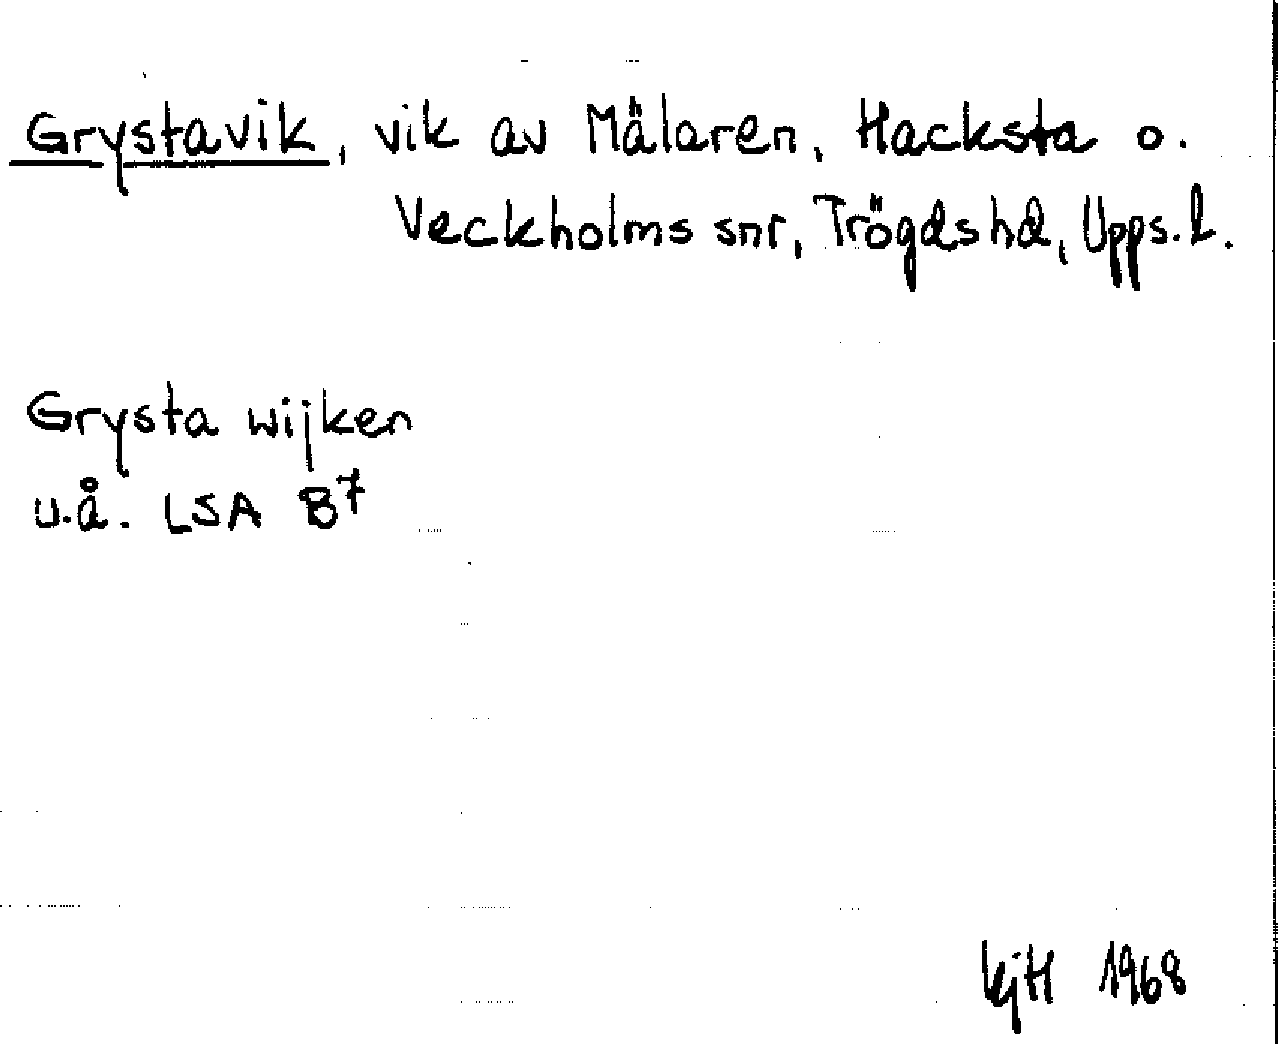 Grystavik, vik av Mälaren, Hacksta o.
Veckholms snr, Trögdshd, Upps. l.
Grysta wijken
u.å. LSA B7
KjH 1968